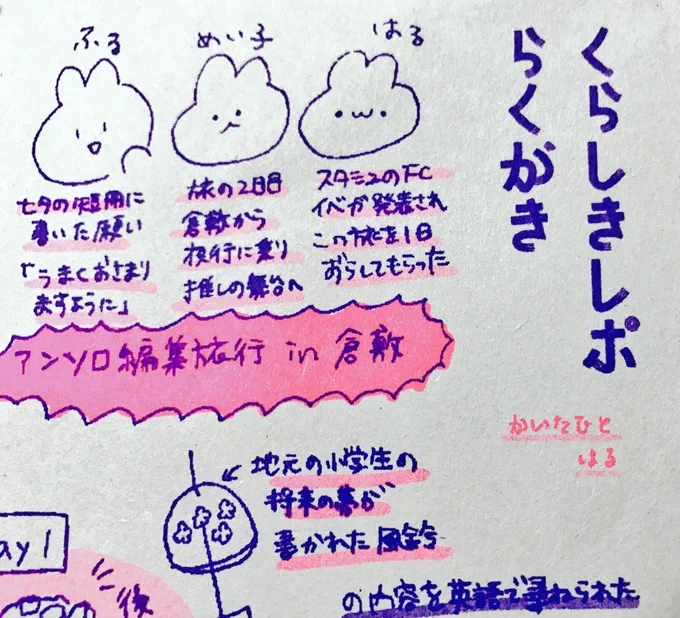 くらしきレポ
らくがき
かいたひと
はる
はる
スタミュのFC
イベが発表され
この旅を1日
ずらしてもらった
めい子
旅の2日目
倉敷から
夜行に乗り
推しの舞台へ
ふる
七夕の短冊に
書いた願い
「うまくおさまり
ますように」
アンソロ編集旅行 in 倉敷
地元の小学生の
将来の夢が
書かれた風鈴
ay1
後
の内容を英語で尋ねられた